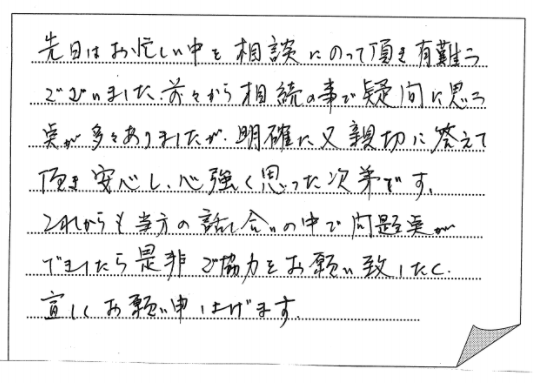 先日はお忙しい中を相談にのって頂き有難う
ございました。前々から相続の事で疑問に思う
点が多々ありましたが、明確に又親切に答えて
頂き安心し、心強く思った次第です。
これからも当方の話し合いの中で問題点が
でましたら是非ご協力をお願い致したく、
宜しくお願い申し上げます。